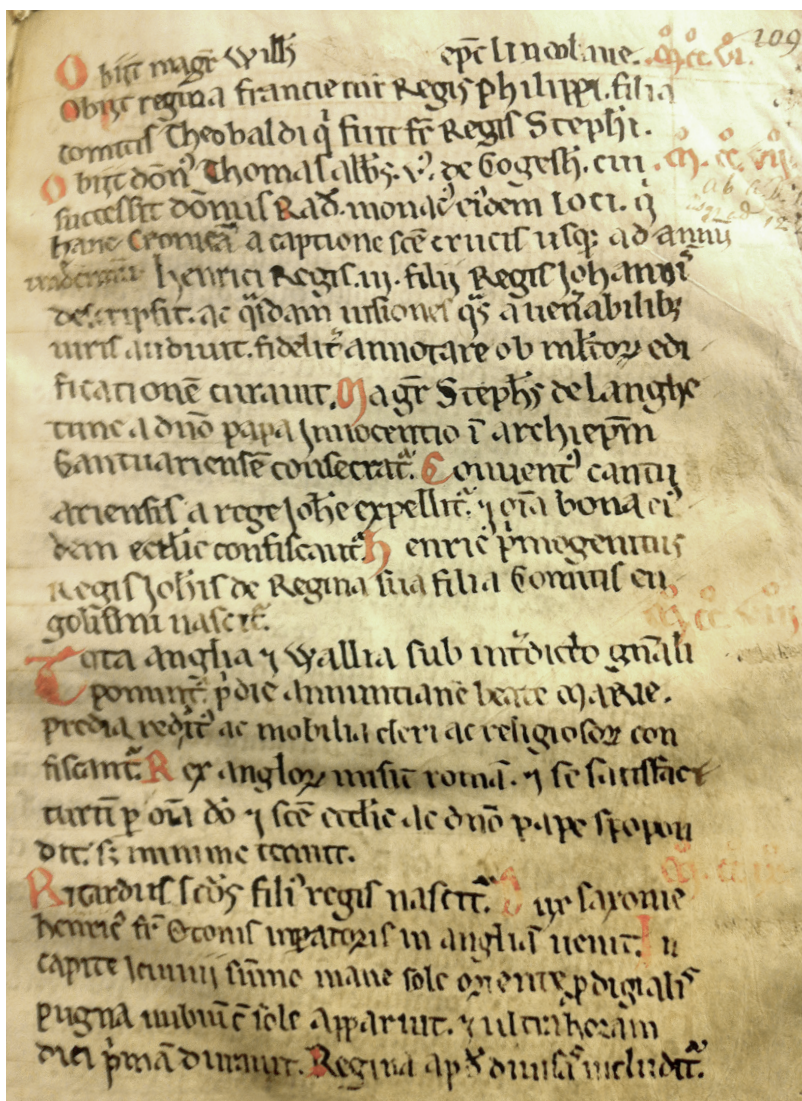 Obijt magr̄ Willī epc̄ lincolnie. .Mº.ccº.viº. 109
Obijt regina francie mr̄ Regis philippi. filia
comitis Theobaldi q̄ fuit fr̄ Regis Stephī.
Obijt don̄ Thomas abb̄s .vº. de Gogesh̄. cui .Mº.ccº.viiº.
successit dōnus Rad. monacꝰ eiꝰdem loci. q̄
hanc Cronicā a captione scē crucis usq; ad annū
henrici Regis .iij. filij Regis Johannis
descripsit. ac q̄sdam uisiones q̄s a uenˀabilibꝫ
uiris audiuit. fideliter annotare ob mltoꝝ edi
ficationē curauit. Magr̄ Steph̄s de Langhe
tune a dn̄o papa Innocentio ī archiepm̄
Cantuariensē consecrat̄. Conuentꝰ cantu
ariensis a rege Johē expellit̄. ⁊ oīa bona ei
dem ecclīe confiscant̄. henricꝰ p̄mogenitus
Regis Joh̄is de Regina sua filia Comitis en
golismi nascit̄.
Tota anglia ⁊ Wallia sub int̄dicto gn̄ali .Mº.ccº.viijº.
ponunt̄ p̄die annuntianē beate MARIE.
predia reddit̄ ac mobilia cleri ac religiosoꝝ con
fiscant̄. Rex angloꝝ misit romā. ⁊ se satisfac
turū p oīa dō ⁊ scē ecclīe ac dn̄o pape spopon
dit. sꝫ minime tenuit.
Ricardus scd̄s filiꝰ regis nascit̄. Dux saxonie
henricꝰ fr̄ Otonis inpatoris in angliā uenit. In
capite ieiunij sūmo mane sole oriente, p̄digialis
pugna nubiū ē sole apparuit. ⁊ ultra horam
diei p̄mā durauit. Regina ap̄ diuisas includit̄.